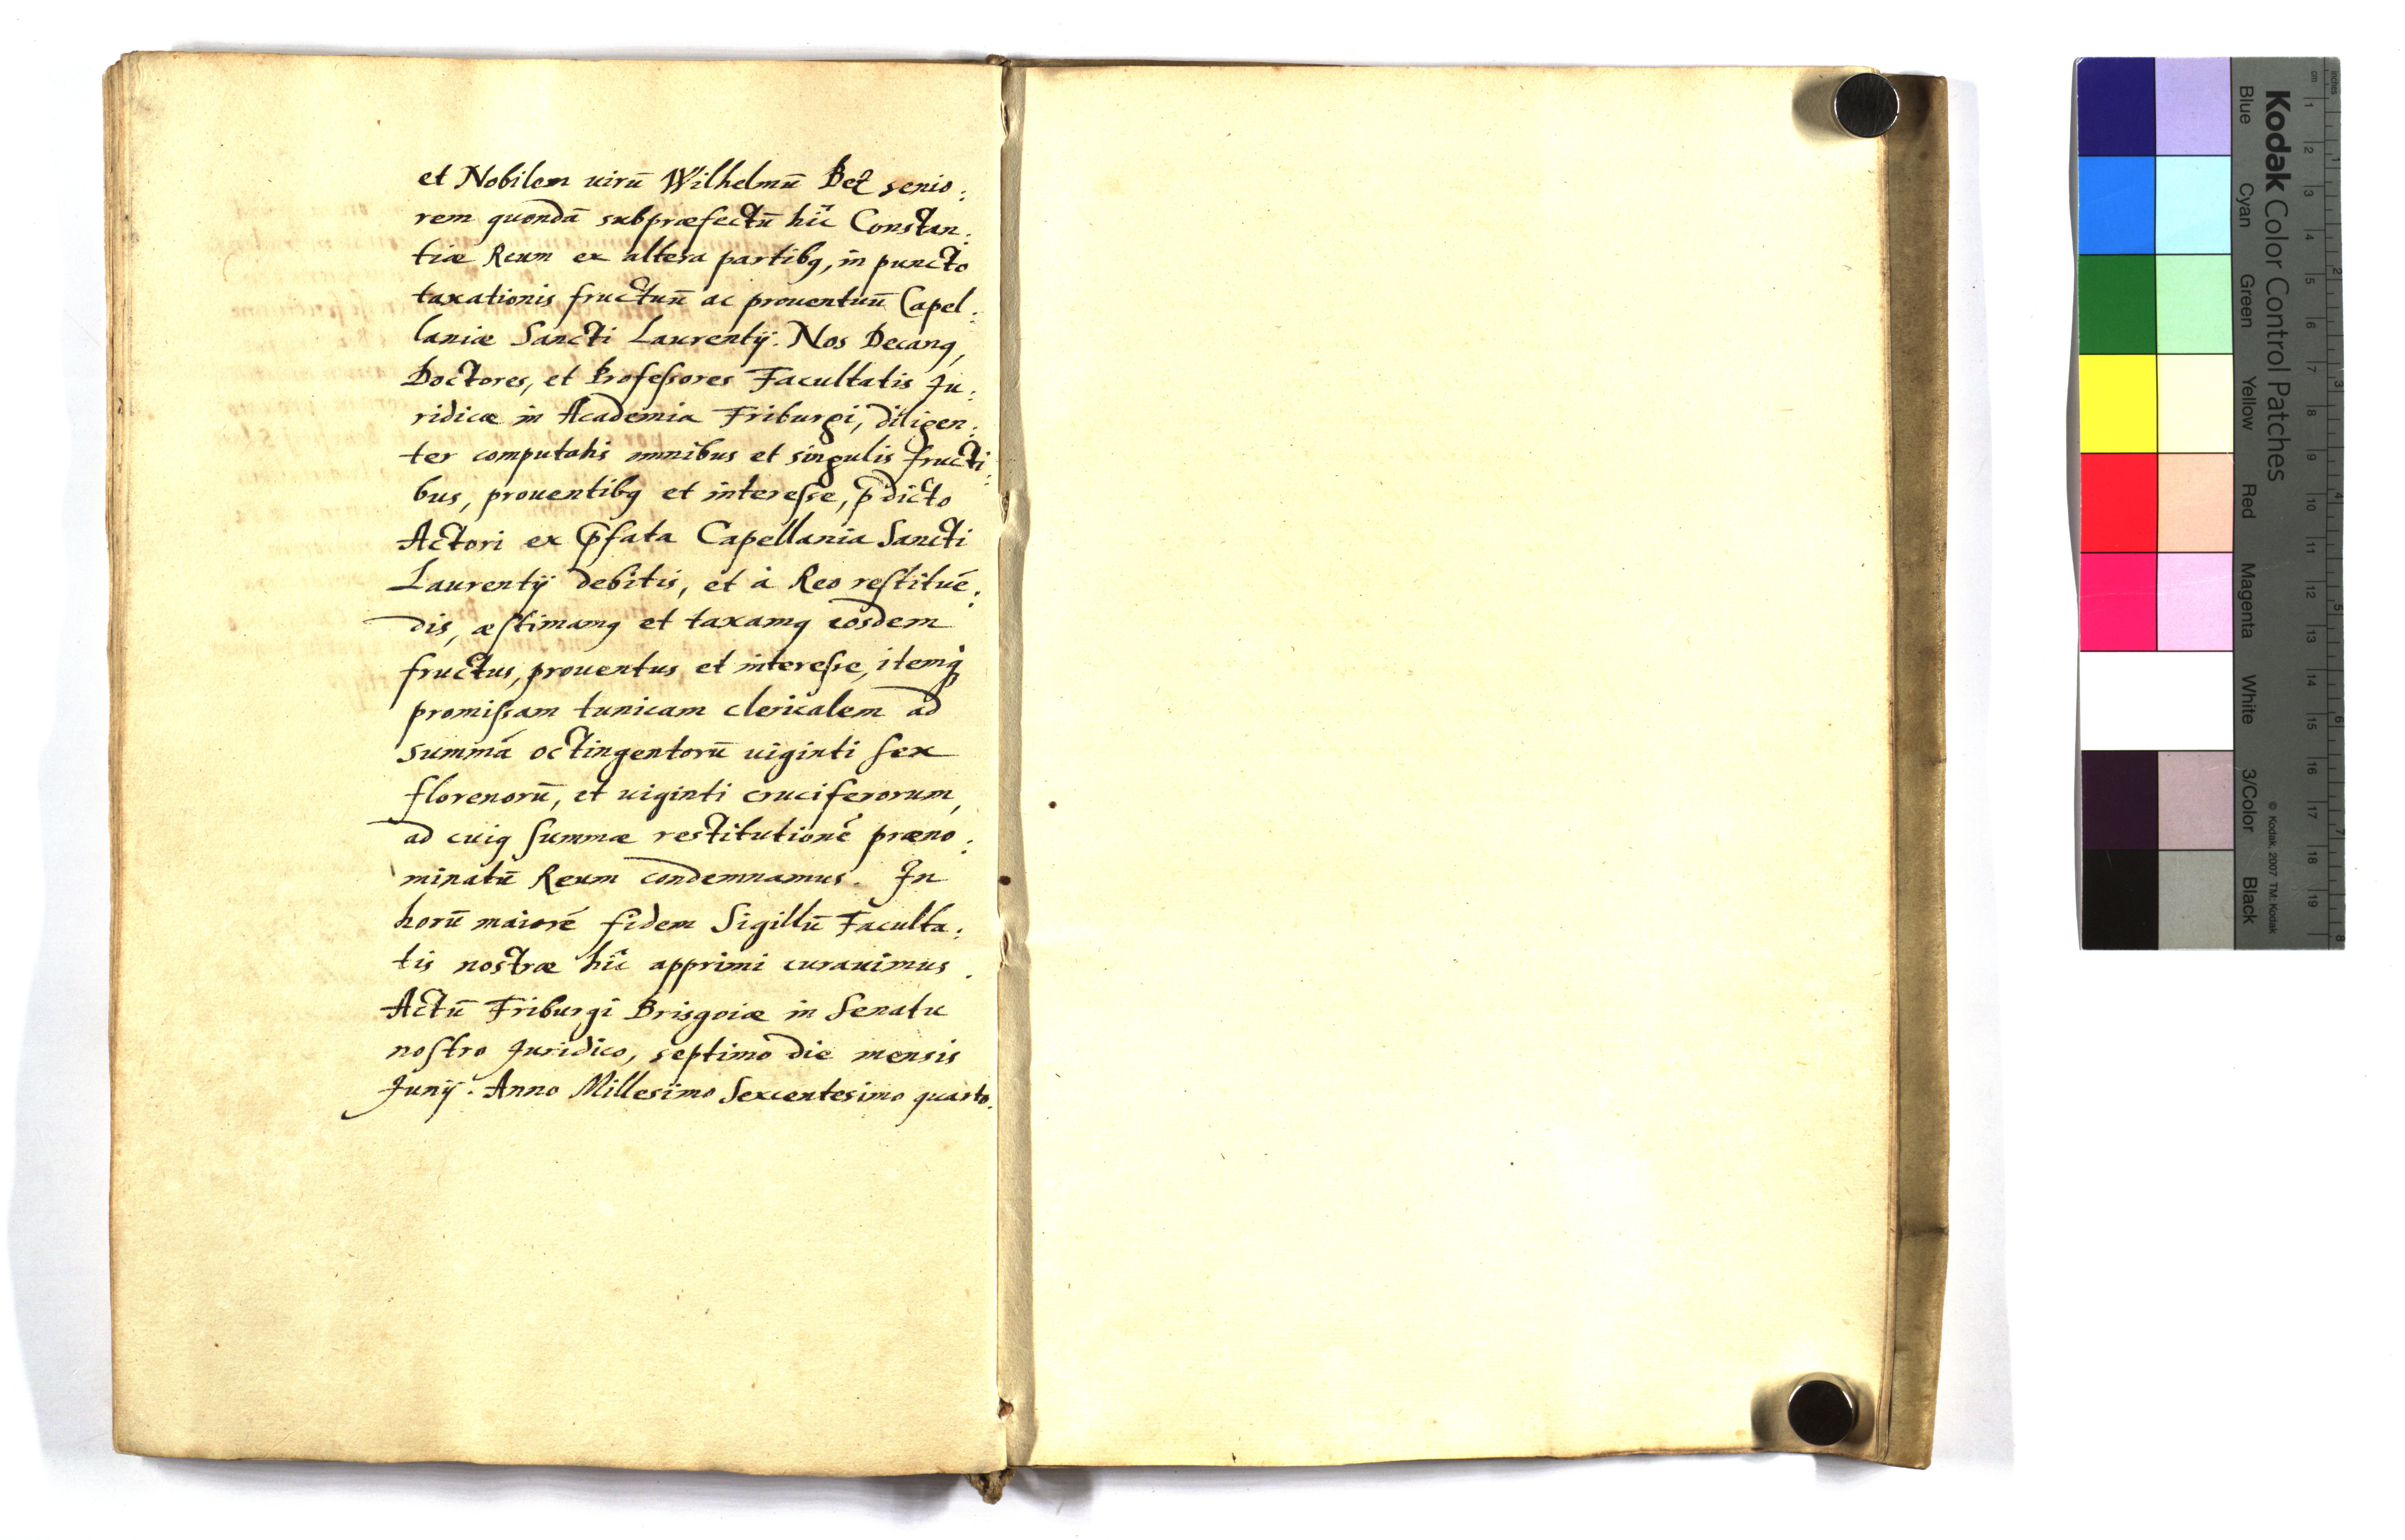 et Nobilem uirū Wilhelmū Betz senio:
rem quondā subpræfectū hîc Constan:
tiæ Reum ex altera partibꝫ, in puncto
taxationis fructuū ac prouentuū Capel:
laniæ Sancti Laurentij. Nos Decanꝫ,
Doctores, et Professores Facultatis Ju:
ridicæ in Academia Friburgi, diligen:
ter computatis omnibus et singulis fructi:
bus, prouentibꝫ et interesse, p̄dicto
Actori ex p̄fata Capellania Sancti
Laurentij debitis, et à Reo restituē:
dis, æstimamꝫ et taxamꝫ eosdem
fructus, prouentus et interesse, itemq̀ꝫ
promissam tunicam clericalem ad
summā octingentorū uiginti sex
florenorū, et uiginti cruciferorum,
ad cuiꝫ summæ restitutionē præno:
minatū Reum condemnamus. In
horū maiorē fidem Sigillū Faculta:
tis nostræ hîc apprimi curauimus.
Actū Friburgi Brisgoiæ in Senatu
nostro Juridico, septimo die mensis
Junij. Anno Millesimo Sexcentesimo quarto.
Kodak Color Control Patches
Blue
Cyan
Green
Yellow
Red
Magenta
White
3/Color
Black
© Kodak, 2007 TM: Kodak
inches
cm
1 2 3 4 5 6 7 8 9 10 11 12 13 14 15 16 17 18 19
1 2 3 4 5 6 7 8